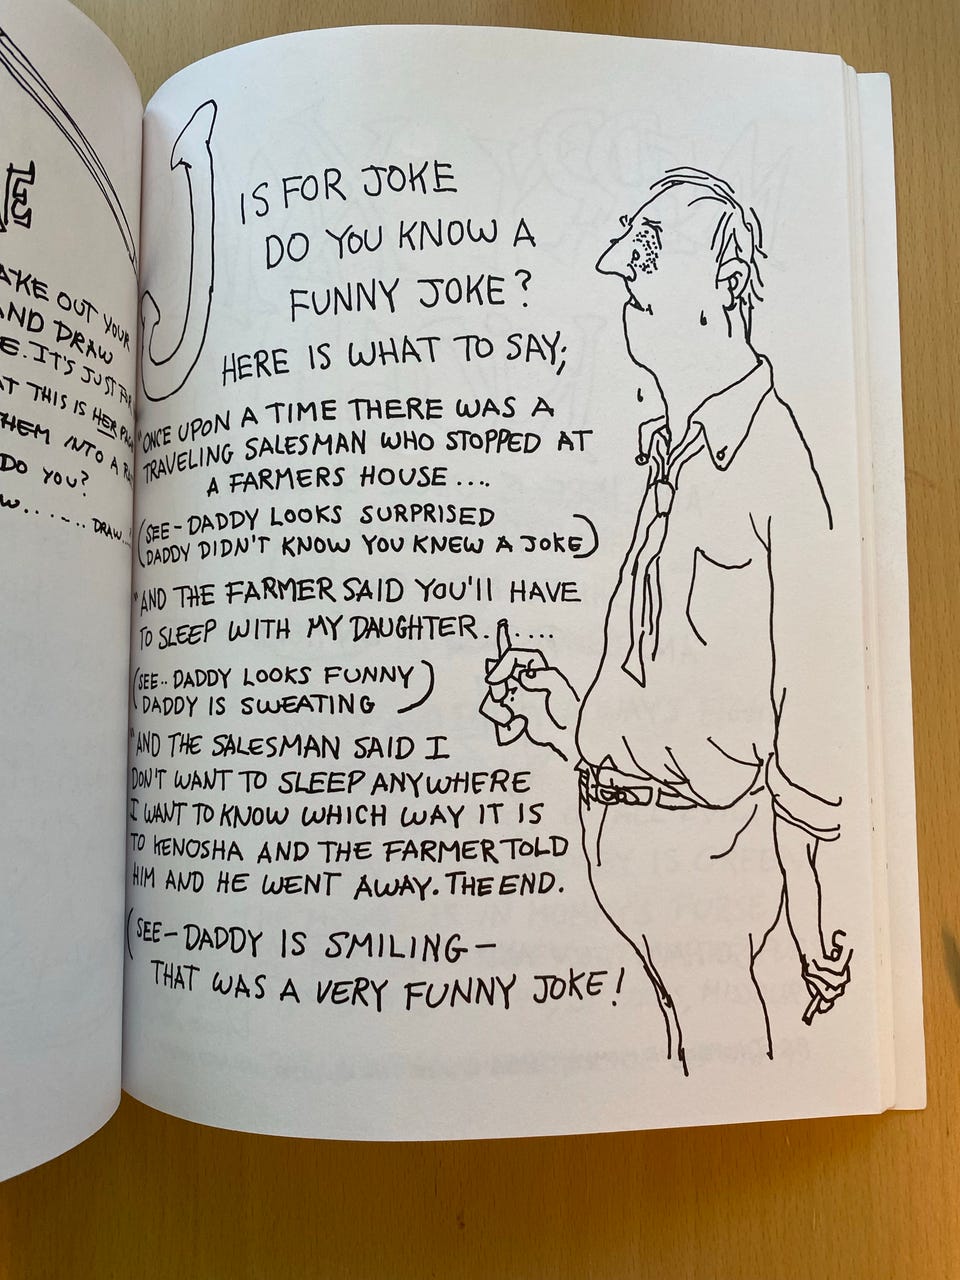 E
AKE OUT YOUR
AND DRAW
E. IT'S JUST
AT THIS IS HER
THEM INTO A
DO YOU?
W...... DRAW...
J
IS FOR JOKE
DO YOU KNOW A
FUNNY JOKE?
HERE IS WHAT TO SAY;
"ONCE UPON A TIME THERE WAS A
TRAVELING SALESMAN WHO STOPPED AT
A FARMERS HOUSE....
(SEE - DADDY LOOKS SURPRISED
DADDY DIDN'T KNOW YOU KNEW A JOKE)
"AND THE FARMER SAID YOU'll HAVE
TO SLEEP WITH MY DAUGHTER.....
(SEE.. DADDY LOOKS FUNNY
DADDY IS SWEATING)
"AND THE SALESMAN SAID I
DON'T WANT TO SLEEP ANYWHERE
I WANT TO KNOW WHICH WAY IT IS
TO KENOSHA AND THE FARMER TOLD
HIM AND HE WENT AWAY. THE END.
(SEE - DADDY IS SMILING -
THAT WAS A VERY FUNNY JOKE!